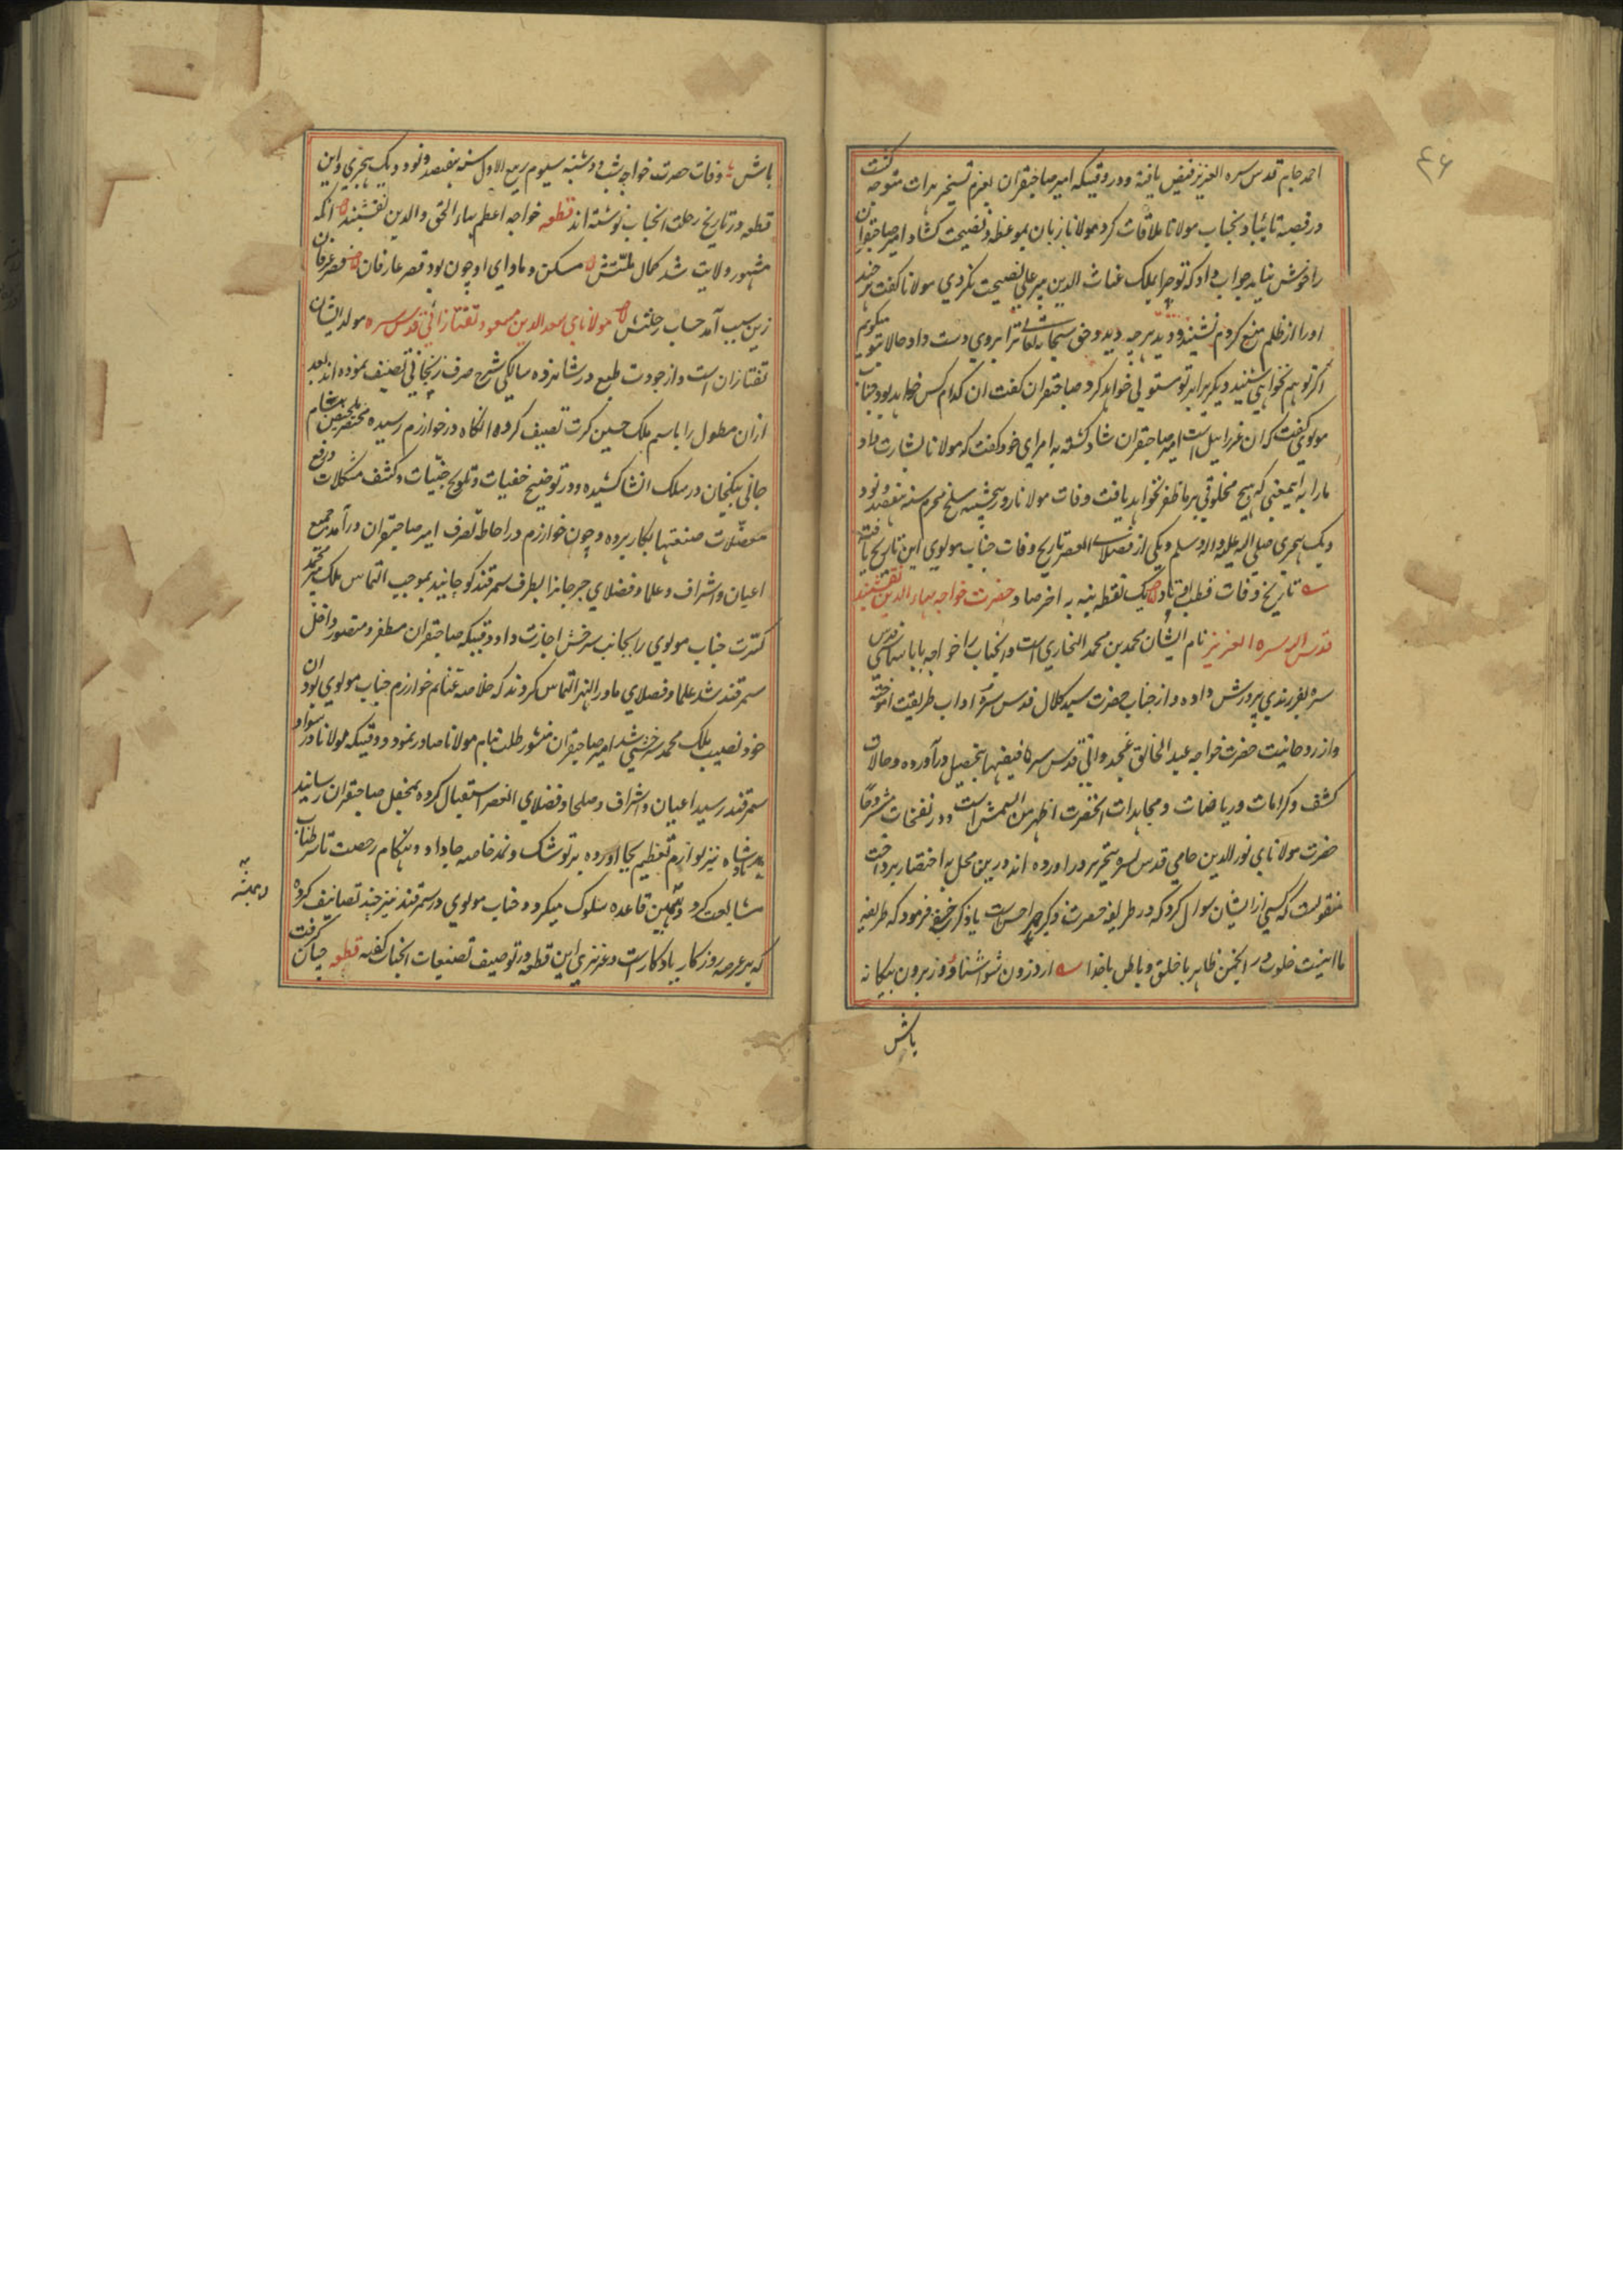 ٤٦
احمد جام قدس سره العزیز فیض یافته و در وقتیکه امیر صاحبقران بعزم تسخیر هرات متوجه کشت
در قصبه تائباد بجناب مولانا ملاقات کرد مولانا زبان بموعظه و نصیحت کشاد امیر صاحبقران
را خوش نیامد جواب داد که تو چرا بملک غیاث الدین پیر علی نصیحت نکردی مولانا کفت هر چند
او را از ظلم منع کردم نشنید و دید هرچه دید و حق سبحانه تعالی ترا بر وی دست داد حالا بتو میکویم
اکر تو هم نخواهی شنید دیکریرا بر تو مستولی خواهد کرد صاحبقران کفت ان کدام کس خواهد بود جناب
مولوی کفت که ان عزرائیل است امیر صاحبقران شاد کشته به امرای خود کفت که مولانا بشارت داد
مارا به اینمعنی که هیچ مخلوقی بر ما ظفر نخواهد یافت وفات مولانا روز پنجشنبه سلخ محرم سنه هفتصد و نود
و یک هجری صلی الله علیه واله وسلم و یکی از فضلای العصر تاریخ وفات جناب مولوی این تاریخ یافته
تاریخ وفات قطب اوتاد یک نقطه بنه به اخر صاد حضرت خواجه بهاء الدین نقشبند
قدس الله سره العزیز نام ایشان محمد بن محمد البخاری است و انجناب را خواجه بابا سماسی قدس
سره بفرزندی پرورش داده و از جناب حضرت سید کلال قدس سره اداب طریقت اموخته
و از روحانیت حضرت خواجه عبد الخالق غجدوانی قدس سره فیضها بتحصیل در آورده و حالات
کشف و کرامات و ریاضات و مجاهدات انحضرت اظهر من الشمش است و در نفحات مشروحا
حضرت مولانای نور الدین جامی قدس سره بتحریر در اورده اند درین محل به اختصار پرداخت
منقولست که کسی از ایشان سوال کرد که در طریقه حضرت ذکر جهر احسن است یا ذکر خفی فرمود که طریقه
ما اینست خلوت در انجمن ظاهر با خلق و باطن با خدا از درون شو اشنا و وز برون بیکانه
باش
باش وفات حضرت خواجه شب دوشنبه سیوم ربیع الاول سنه هفتصد و نود و یک هجری و این
قطعه در تاریخ رحلت انجناب نوشته اند قطعه خواجه اعظم بهاء الحق والدین نقشبند انکه
مشهور ولایت شد کمال ملتش مسکن و ماوای او چون بود قصر عارفان قصر عرفان
زین سبب آمد حساب رحلتش مولانای سعد الدین مسعود تفتازانی قدس سره مولد ایشان
تفتازان است و از جودت طبع در شانزده سالکی شرح صرف زنجانی تصنیف نموده اند بعد
ازان مطول را باسم ملک حسین کرت تصنیف کرده انکاه در خوارزم رسیده مختصر تلخیص بنام
جانی بیکخان در سلک انشا کشیده و در توضیح خفیات و تلویح خبیات و کشف مشکلات و رفع
معضلات صنعتها بکار برده و چون خوارزم در احاطه تصرف امیر صاحبقران در آمد جمیع
اعیان و اشراف و علما و فضلای جرجانرا بطرف سمرقند کوچانید بموجب التماس ملک میر محمد
کرت جناب مولوی را بجانب سرخس اجازت داد وقتیکه صاحبقران مظفر و منصور داخل
سمرقند شد علما و فضلای ماورالنهر التماس کردند که خلاصه غنایم خوارزم جناب مولوی بود ان
خود نصیب ملک محمد سرخسی شد امیر صاحبقران منشور طلب بنام مولانا صادر نمود و وقتیکه مولانا در سواد
سمرقند رسید اعیان و اشراف و صلحا و فضلای العصر استقبال کرده بمحفل صاحبقران رسانیدند
پادشاه نیز لوازم تعظیم بجا اورده بر توشک و نمد خاصه جا داد و هنکام رخصت تا سر طناب
مشایعت کرد و بهمین قاعده سلوک میکرد و جناب مولوی در سمرقند نیز چند تصانیف کرده
که بر عرصه روزکار یادکار است و عزیزی این قطعه در توصیف تصنیفات انجناب کفته قطعه جهان کرفت